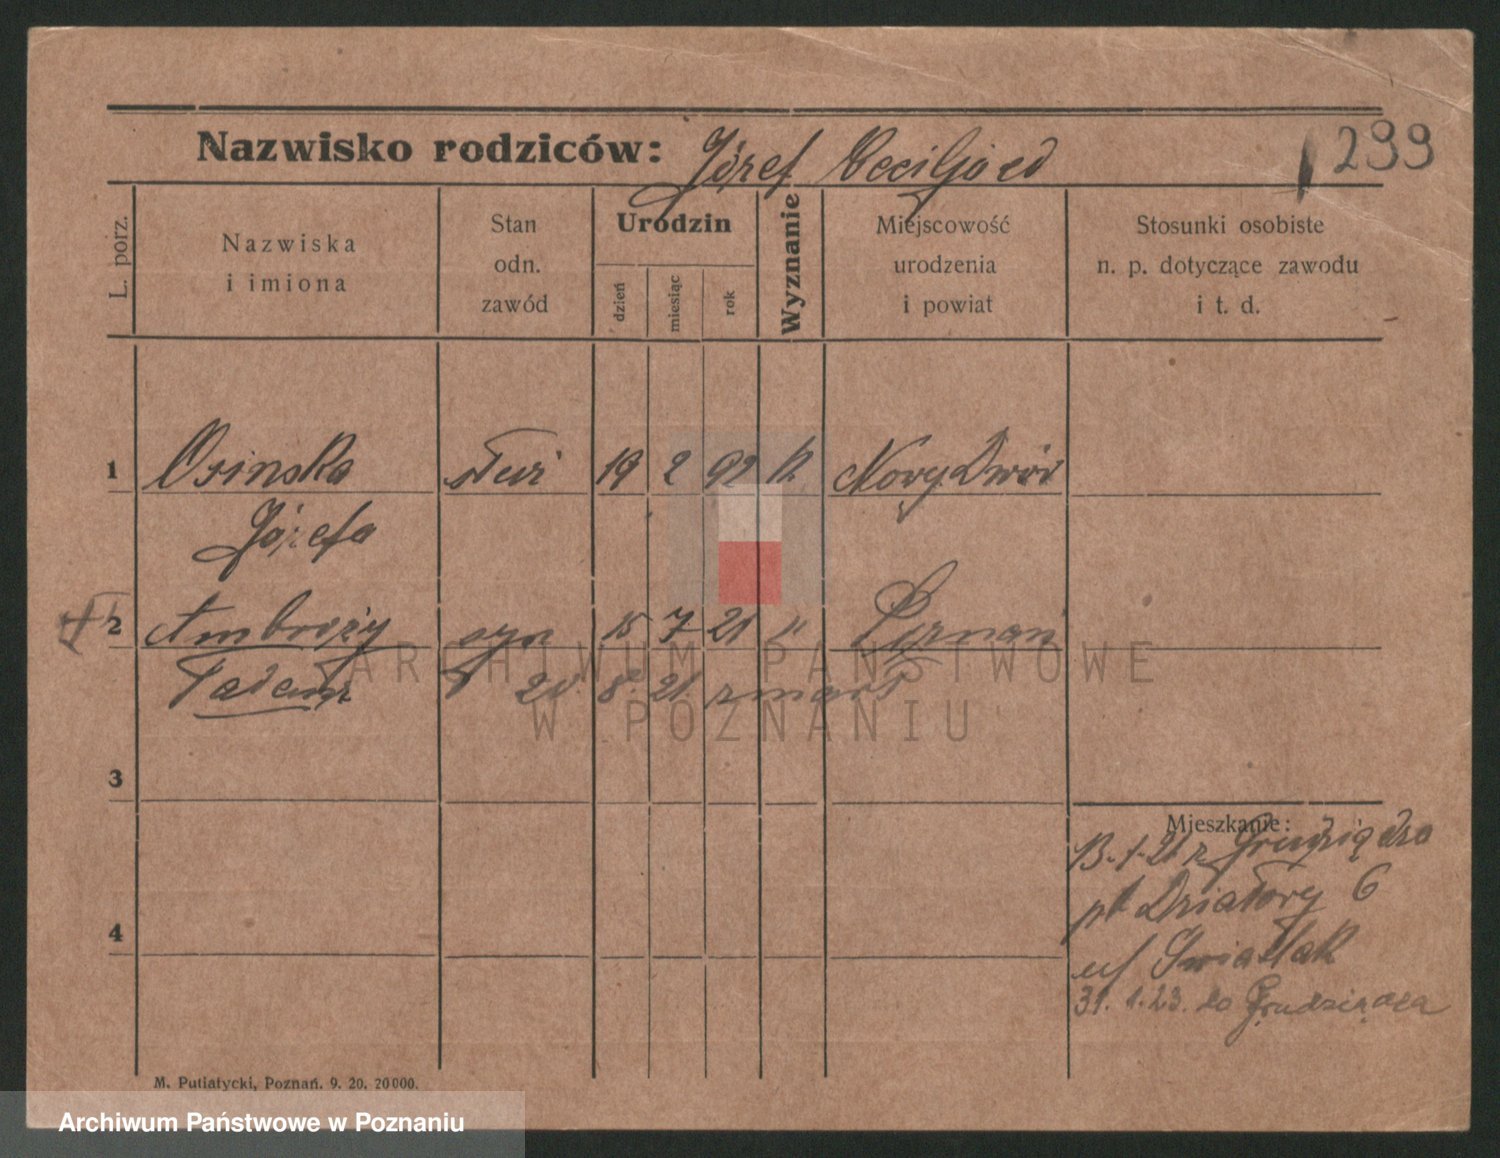 Nazwisko rodziców: Józef
299
L. porz.
Nazwiska
i imiona
Stan
odn.
zawód
Urodzin
dzień
miesiąc
rok
Wyznanie
Miejscowość
urodzenia
i powiat
Stosunki osobiste
n. p. dotyczące zawodu
i t. d.
1 Osinska służ 19 2 92 k Nowy Dwór
Józefa
2 Ambroży syn 15 7 21 " Poznań
Tadeusz † 20 8. 21. zmarł
3
4
Mieszkanie:
13. 1. 21 z Grudziądza
Działowy 6
Świattak
31. 1. 23. do Grudziądza
M. Putiatycki, Poznań. 9. 20. 20000.
ARCHIWUM PAŃSTWOWE
W POZNANIU
Archiwum Państwowe w Poznaniu